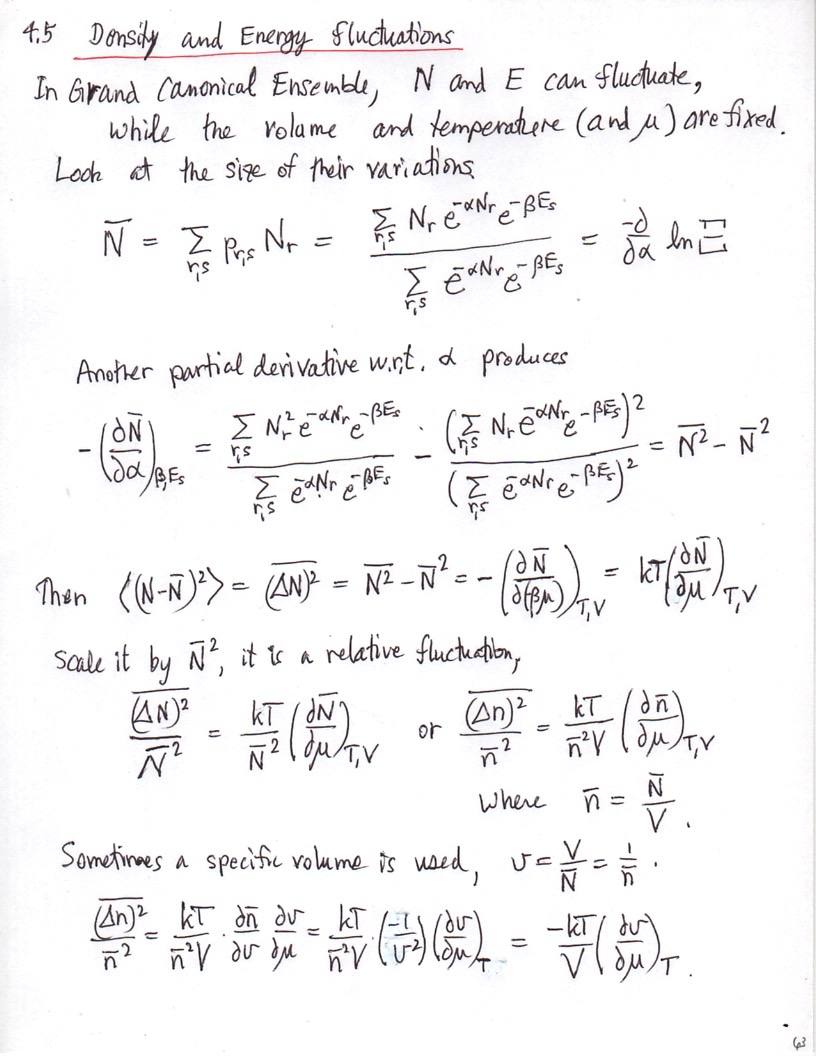 4.5 Density and Energy Fluctuations
In Grand Canonical Ensemble, N and E can fluctuate,
While the volume and temperature (and μ) are fixed.
Look at the size of their variations
N̄ = Σ_{r,s} p_{r,s} N_r = (Σ_{r,s} N_r e^{-αN_r} e^{-βE_s}) / (Σ_{r,s} e^{-αN_r} e^{-βE_s}) = (-∂/∂α) ln Ξ
Another partial derivative w.r.t. α produces
-(∂N̄/∂α)_{β,E_s} = (Σ_{r,s} N_r² e^{-αN_r} e^{-βE_s}) / (Σ_{r,s} e^{-αN_r} e^{-βE_s}) - (Σ_{r,s} N_r e^{-αN_r} e^{-βE_s})² / (Σ_{r,s} e^{-αN_r} e^{-βE_s})² = \overline{N²} - N̄²
Then ⟨(N-N̄)²⟩ = \overline{(ΔN)²} = \overline{N²} - N̄² = -(∂N̄/∂(βμ))_{T,V} = kT(∂N̄/∂μ)_{T,V}
Scale it by N̄², it is a relative fluctuation,
\overline{(ΔN)²}/N̄² = (kT/N̄²)(∂N̄/∂μ)_{T,V} or \overline{(Δn)²}/n̄² = (kT/(n̄²V))(∂n̄/∂μ)_{T,V}
Where n̄ = N̄/V.
Sometimes a specific volume is used, v = V/N̄ = 1/n̄.
\overline{(Δn)²}/n̄² = (kT/(n̄²V)) · (∂n̄/∂v) (∂v/∂μ) = (kT/(n̄²V)) · (-1/v²)(∂v/∂μ)_T = (-kT/V)(∂v/∂μ)_T.
63